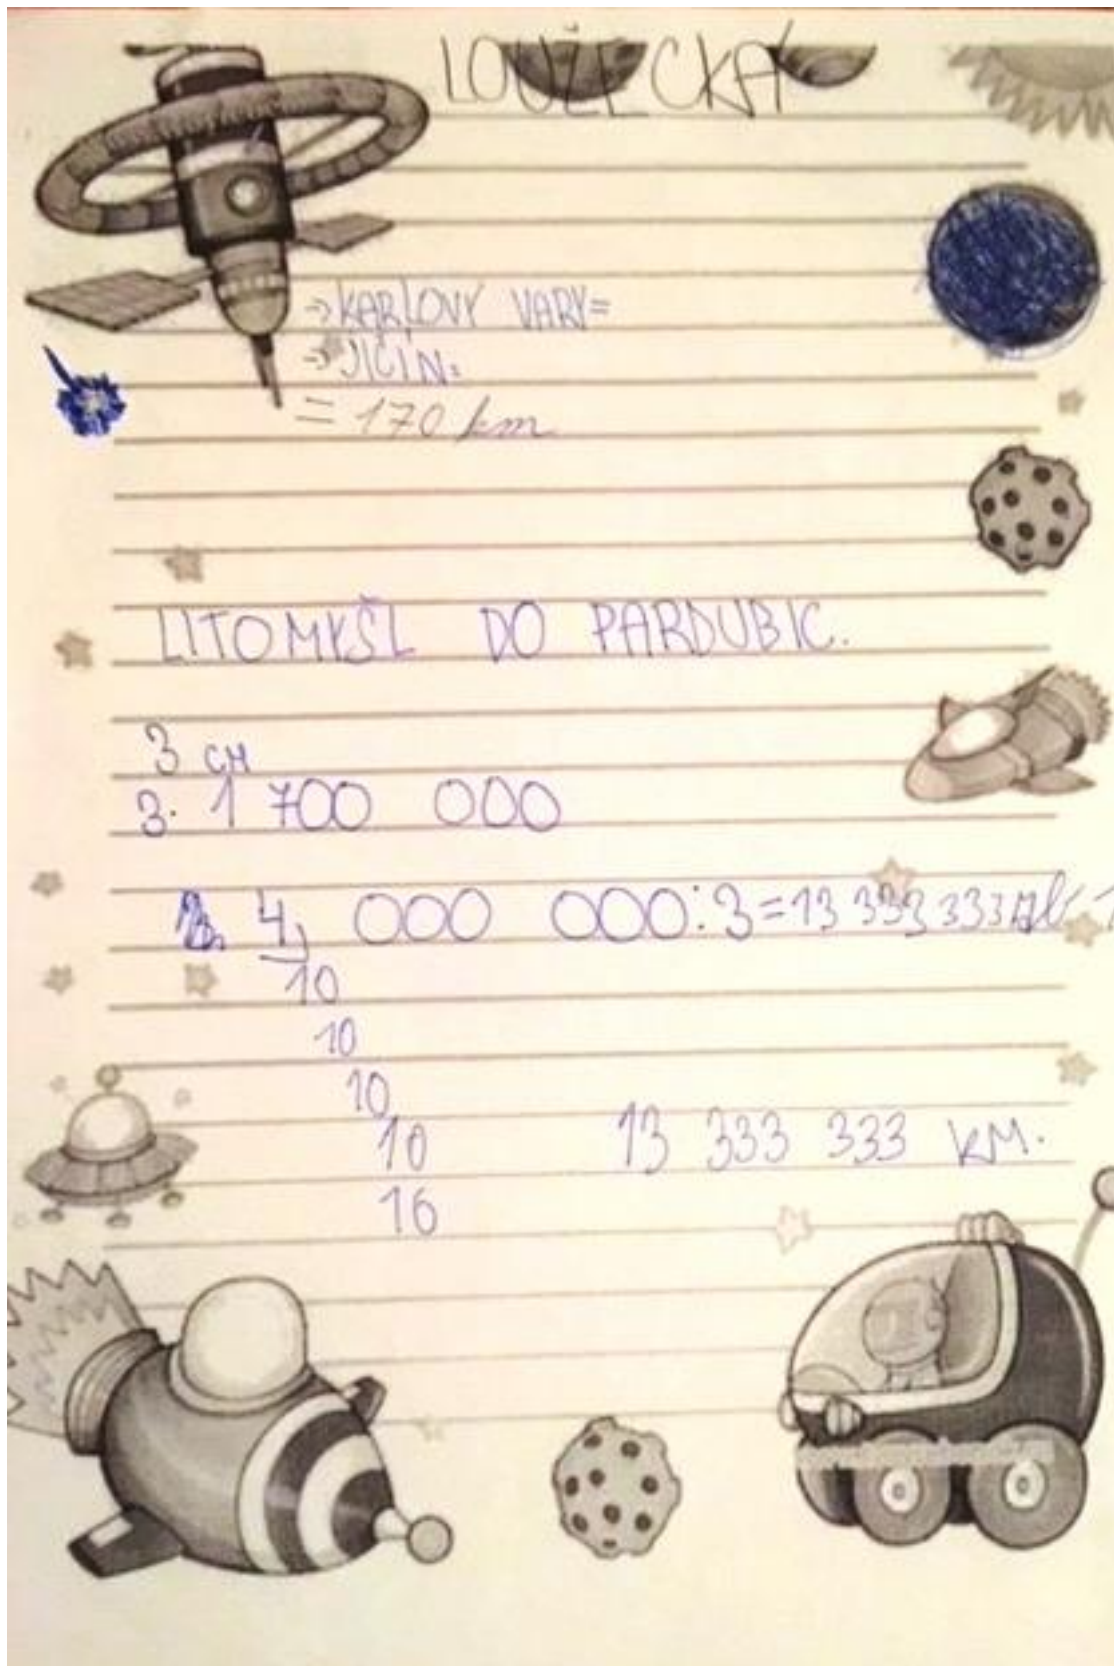 LOUČECKÁ
→ KARLOVY VARY=
→ JIČÍN=
= 170 km
LITOMYŠL DO PARDUBIC.
3 CM
3. 1 700 000
4, 000 000:3=13 333 333
10
10
10
10
13 333 333 KM.
16